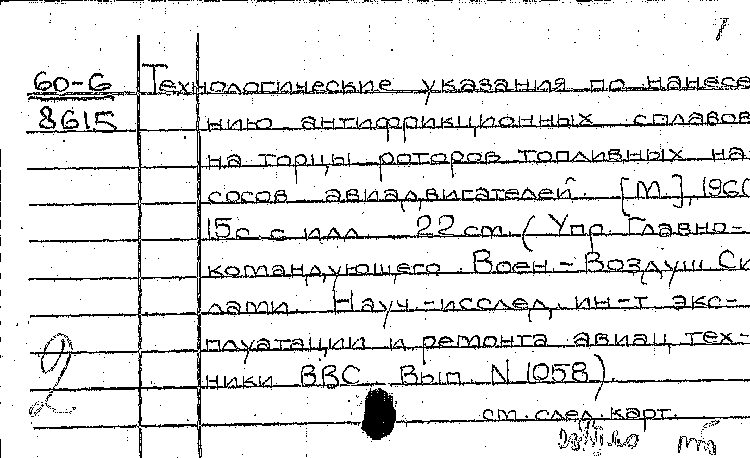 60-6 Технологические указания по нанесе
8615 нию антифрикционных сплавов
на торцы роторов топливных на
сосов авиадвигателей. [М.], 1960
15с. с илл. 22 см. (Упр. Главно-
командующего Воен-Воздуш Си
лами. Науч.-исслед. ин-т экс-
плуатации и ремонта авиац. тех-
2 ники ВВС Вып. N 1058).
см. след. карт.